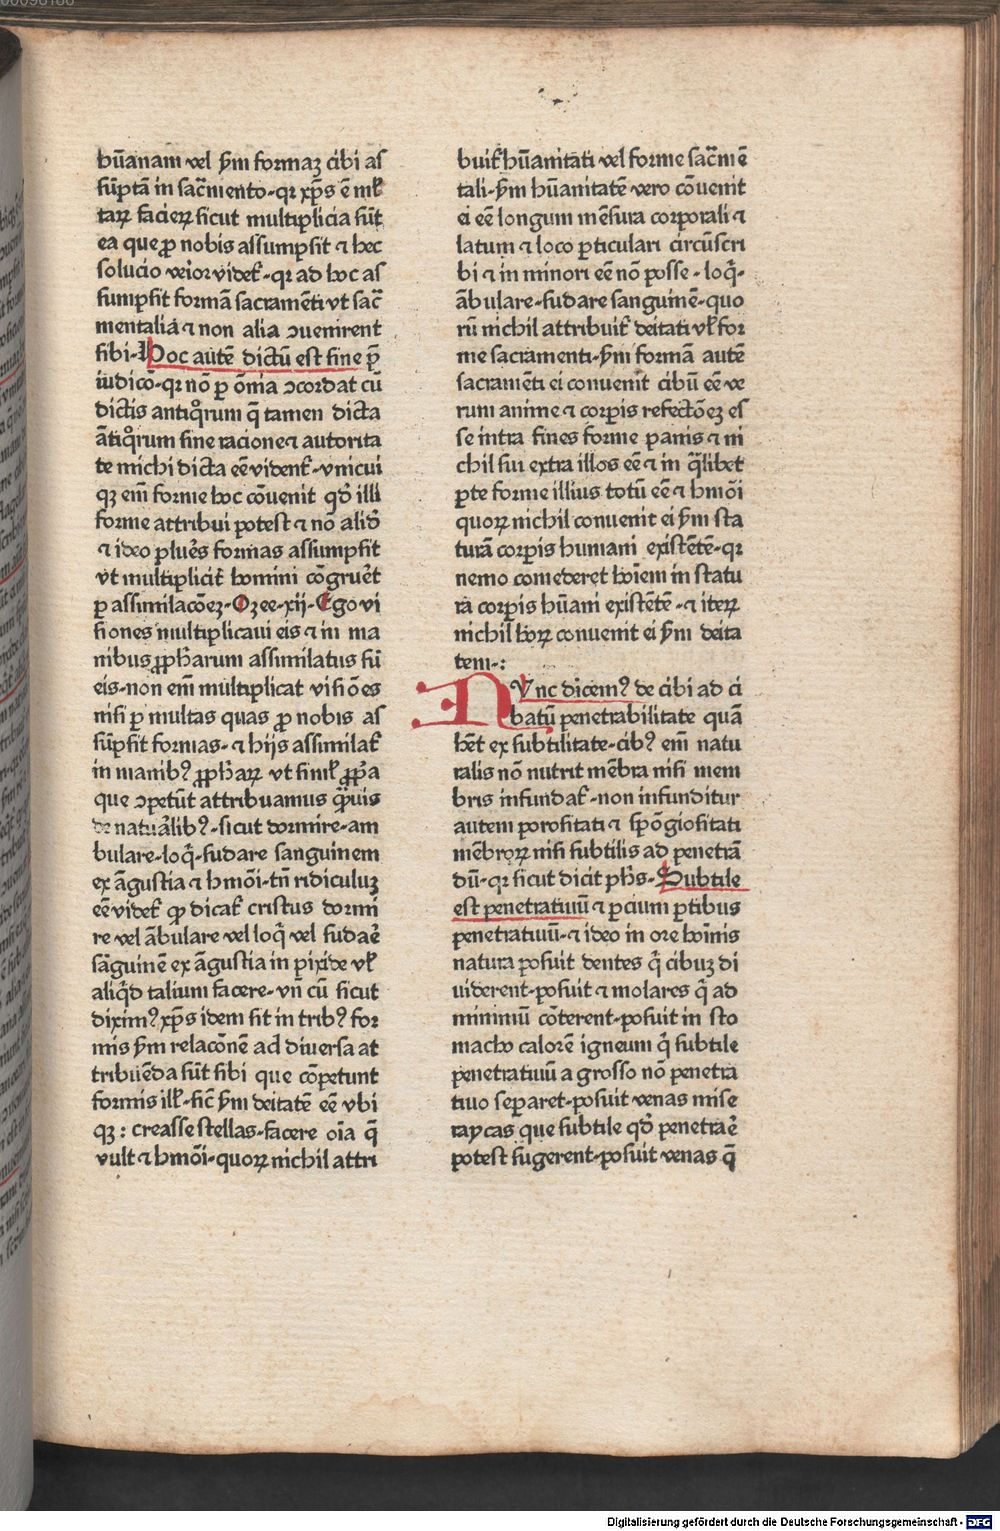 hūanam vel ẜm formaꝫ cibi aſ
ſūptā in sac̄mento-qꝛ xp̄s ē ml̄
taꝝ facieꝝ ſicut multiplicia ſūt
ea que ꝓ nobis aſſumpſit ⁊ hec
ſolucio veꝛior videt᷑-qꝛ ad hoc aſ
ſumpſit formā sacramēti vt sac̄
mentalia ⁊ non alia ↄuenirent
ſibi-Hoc autē dictū est ſine p̄
iudicō-qꝛ nō ꝑ ōmia ↄcordat cū
dictis antiqͦrum q̄ tamen dicta
ātiqͦrum ſine racione ⁊ autorita
te michi dicta eē vident᷑-vnicui
qꝫ em̄ forme hoc cōuenit qd̄ illi
forme attribui potest ⁊ nō alid̄
⁊ ideo plue᷒s formas aſſumpſit
vt multiplicit᷑ homini cōgruēt
ꝑ aſſimilacōeꝫ-Ozee-xij-Ego vi
ſiones multiplicaui eis ⁊ in ma
nibus ꝓph̄arum aſſimilatus ſū
eis-non em̄ multiplicat viſiōes
niſi ꝑ multas quas ꝓ nobis aſ
ſūpſit formas-⁊ hijs aſſimilat᷑
in manibꝰ ꝓph̄aꝝ vt ſimł ꝓp̄a
que ↄpetūt attribuamus qͣ̄uis
de natuālibꝰ-ſicut dormire-am
bulare-loq̄-ſudare ſanguinem
ex āguſtia ⁊ hmōi-tn̄ ridiculuꝫ
eē videt᷑ ꝙ dicat᷑ cristus dormi
re vel ābulare vel loq̄ vel ſudae᷒
ſāguinē ex āguſtia in pixide vł
aliqͥd talium facere-vn̄ cū ſicut
diximꝰ xp̄s idem ſit in tribꝰ foꝛ
mis ẜm relacōnē ad diuersa at
tribuēda ſūt ſibi que cōpetunt
formis ill᷑-ſic̄ ẜm deitatē eē vbi
qꝫ: creaſſe ſtellas-facere oīa q̄
vult ⁊ hmōi-quoꝝ nichil attri
buit᷑ hūanitati vel forme sac̄mē
tali-ẜm hūanitatē vero cōuenit
ei eē longum mēſura corporali ⁊
latum ⁊ loco ꝑticulari circūſcri
bi ⁊ in minori eē nō poſſe-loq̄-
ābulare-ſudare ſanguinē-quo
rū nichil attribuit᷑ deitati vł foꝛ
me sacramenti-ẜm formā autē
sacramēti ei conuenit cibū eē ve
rum anime ⁊ corꝑis refectōeꝫ eſ
ſe intra fines forme panis ⁊ ni
chil ſui extra illos eē ⁊ in q̄libet
ꝑte forme illius totū eē ⁊ hmōi
quoꝝ nichil conuenit ei ẜm ſta
turā corꝑis humani exiſtētē-qꝛ
nemo comederet hoīem in ſtatu
rā corꝑis hūani exiſtētē-⁊ iteꝝ
nichil hoꝝ conuenit ei ẜm deita
tem-:
NVnc dicemꝰ de cibi ad ci
batū penetrabilitate quā
h̄et ex ſubtilitate-cibꝰ em̄ natu
ralis nō nutrit mēbra niſi mem
bris infundat᷑-non infunditur
autem poroſitati ⁊ ſpōgioſitati
mēbroꝝ niſi ſubtilis ad penetrā
dū-qꝛ ſicut dicit ph̄s-Subtile
est penetratiuū ⁊ ꝑcium ꝑtibus
penetratiuū-⁊ ideo in ore hoīnis
natura poſuit dentes q̄ cibuꝫ di
uiderent-poſuit ⁊ molares q̄ ad
minimū cōterent-poſuit in ſto
macho calorē igneum q̄ ſubtile
penetratiuū a groſſo nō penetra
tiuo ſeparet-poſuit venas miſe
raycas que ſubtile qd̄ penetrae᷒
potest ſugerent-poſuit venas q̄
Digitalisierung gefördert durch die Deutsche Forschungsgemeinschaft - DFG